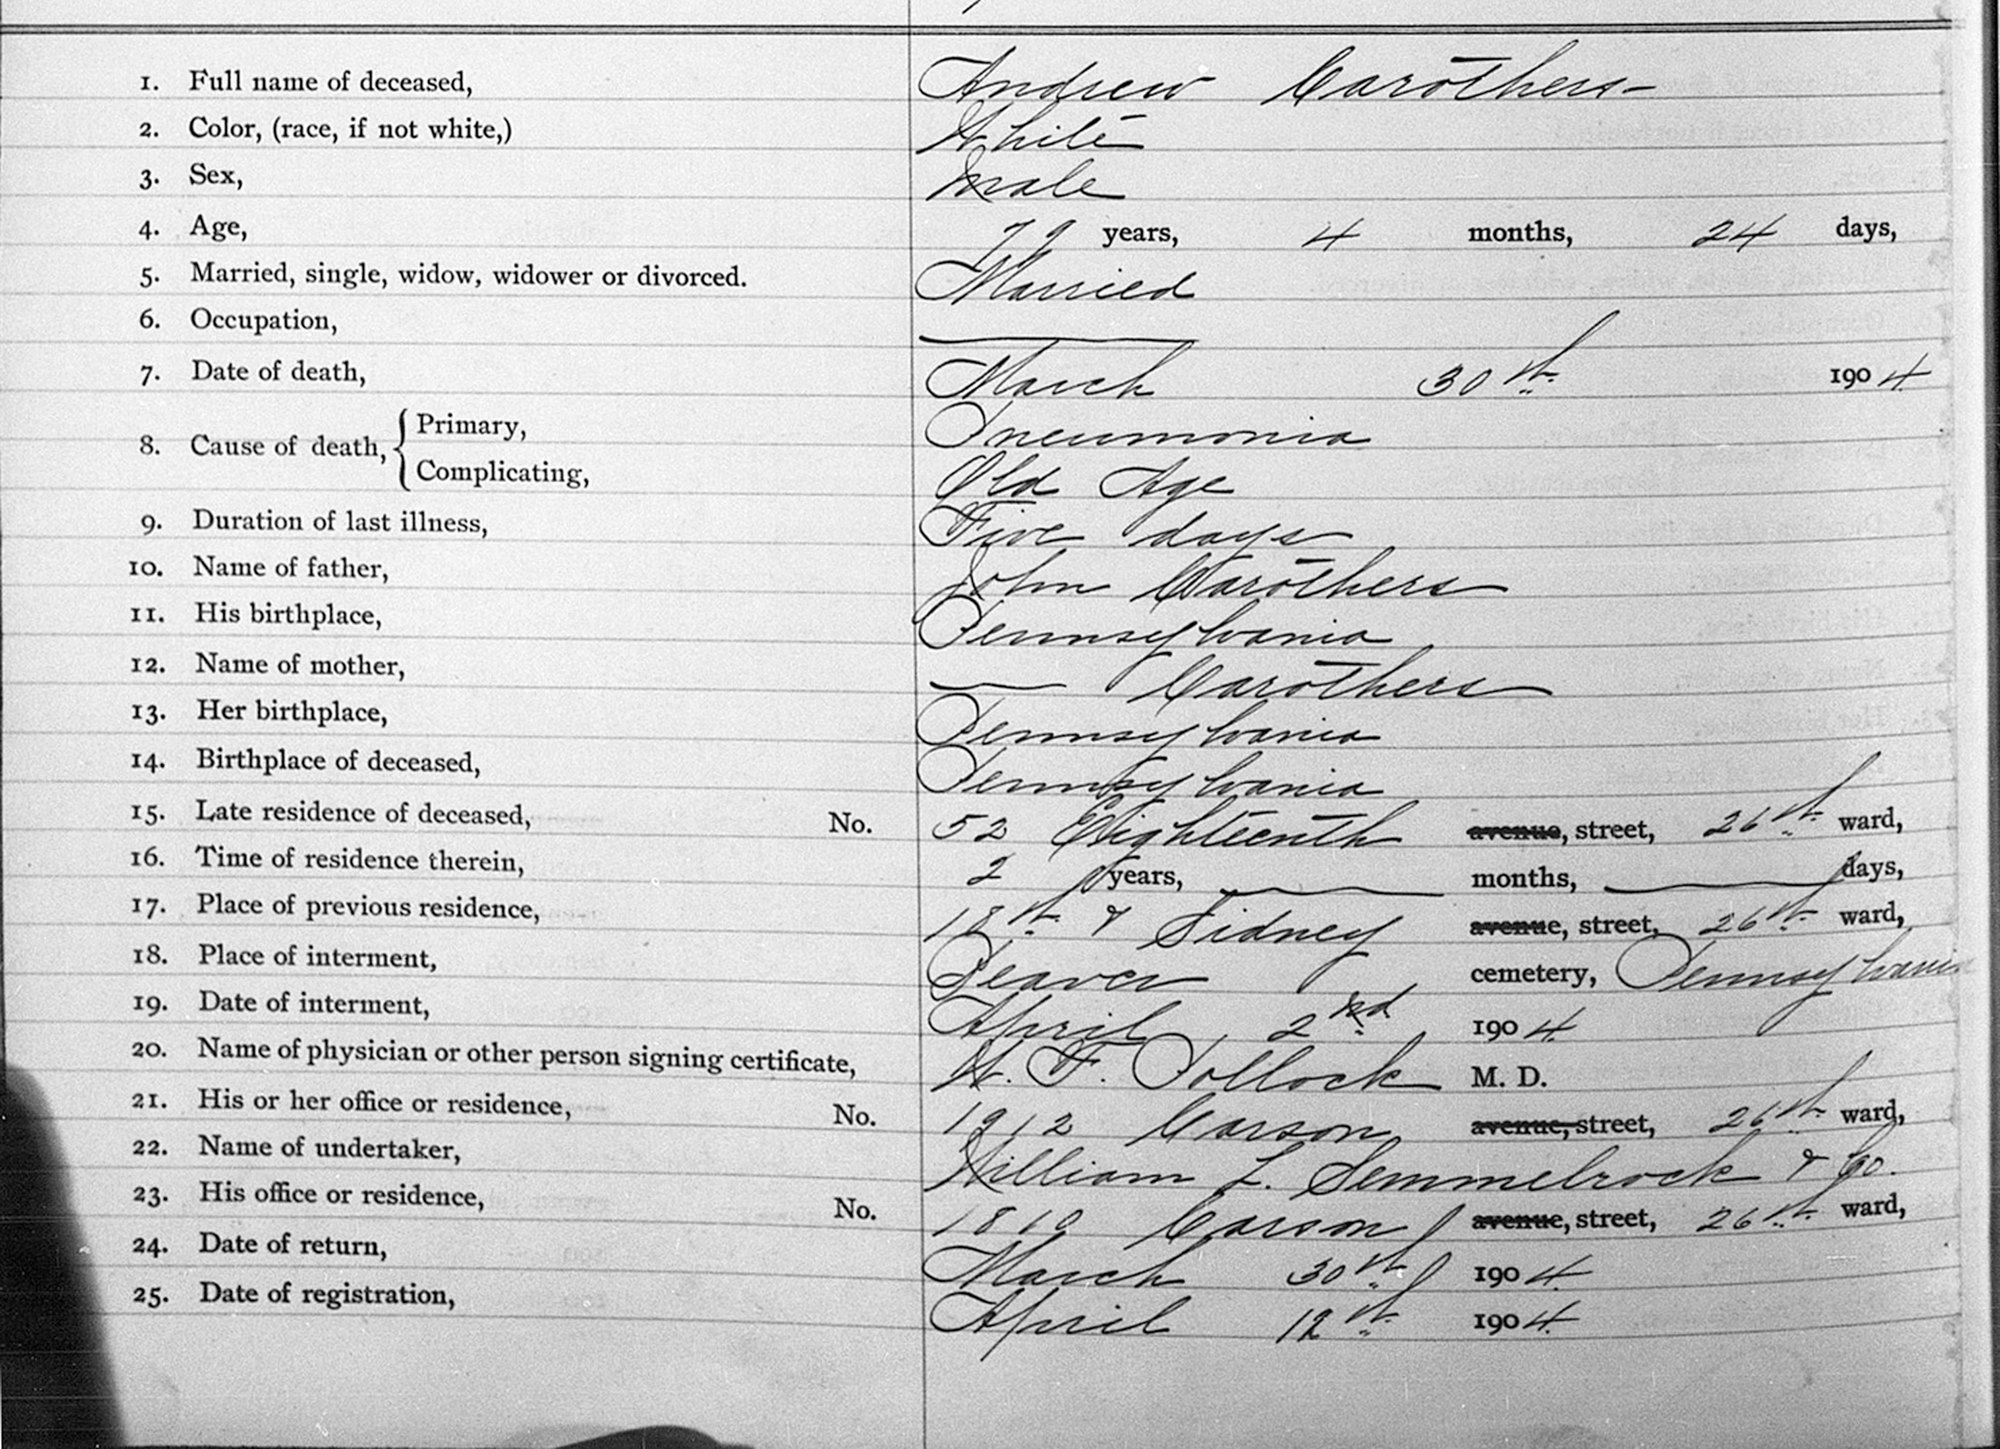 1. Full name of deceased, Andrew Carothers
2. Color, (race, if not white,) White
3. Sex, Male
4. Age, 79 years, 4 months, 24 days,
5. Married, single, widow, widower or divorced. Married
6. Occupation,
7. Date of death, March 30th 1904
8. Cause of death, { Primary, Pneumonia
Complicating, Old Age
9. Duration of last illness, Five days
10. Name of father, John Carothers
11. His birthplace, Pennsylvania
12. Name of mother, — Carothers
13. Her birthplace, Pennsylvania
14. Birthplace of deceased, Pennsylvania
15. Late residence of deceased, No. 52 Eighteenth avenue, street, 26th ward,
16. Time of residence therein, 2 years, — months, — days,
17. Place of previous residence, 18th & Sidney avenue, street, 26th ward,
18. Place of interment, Beaver cemetery, Pennsylvania
19. Date of interment, April 2nd 1904
20. Name of physician or other person signing certificate, W. F. Pollock M. D.
21. His or her office or residence, No. 1912 Carson avenue, street, 26th ward,
22. Name of undertaker, William L. Semmelrock & Co.
23. His office or residence, No. 1810 Carson avenue, street, 26th ward,
24. Date of return, March 30th 1904
25. Date of registration, April 12th 1904